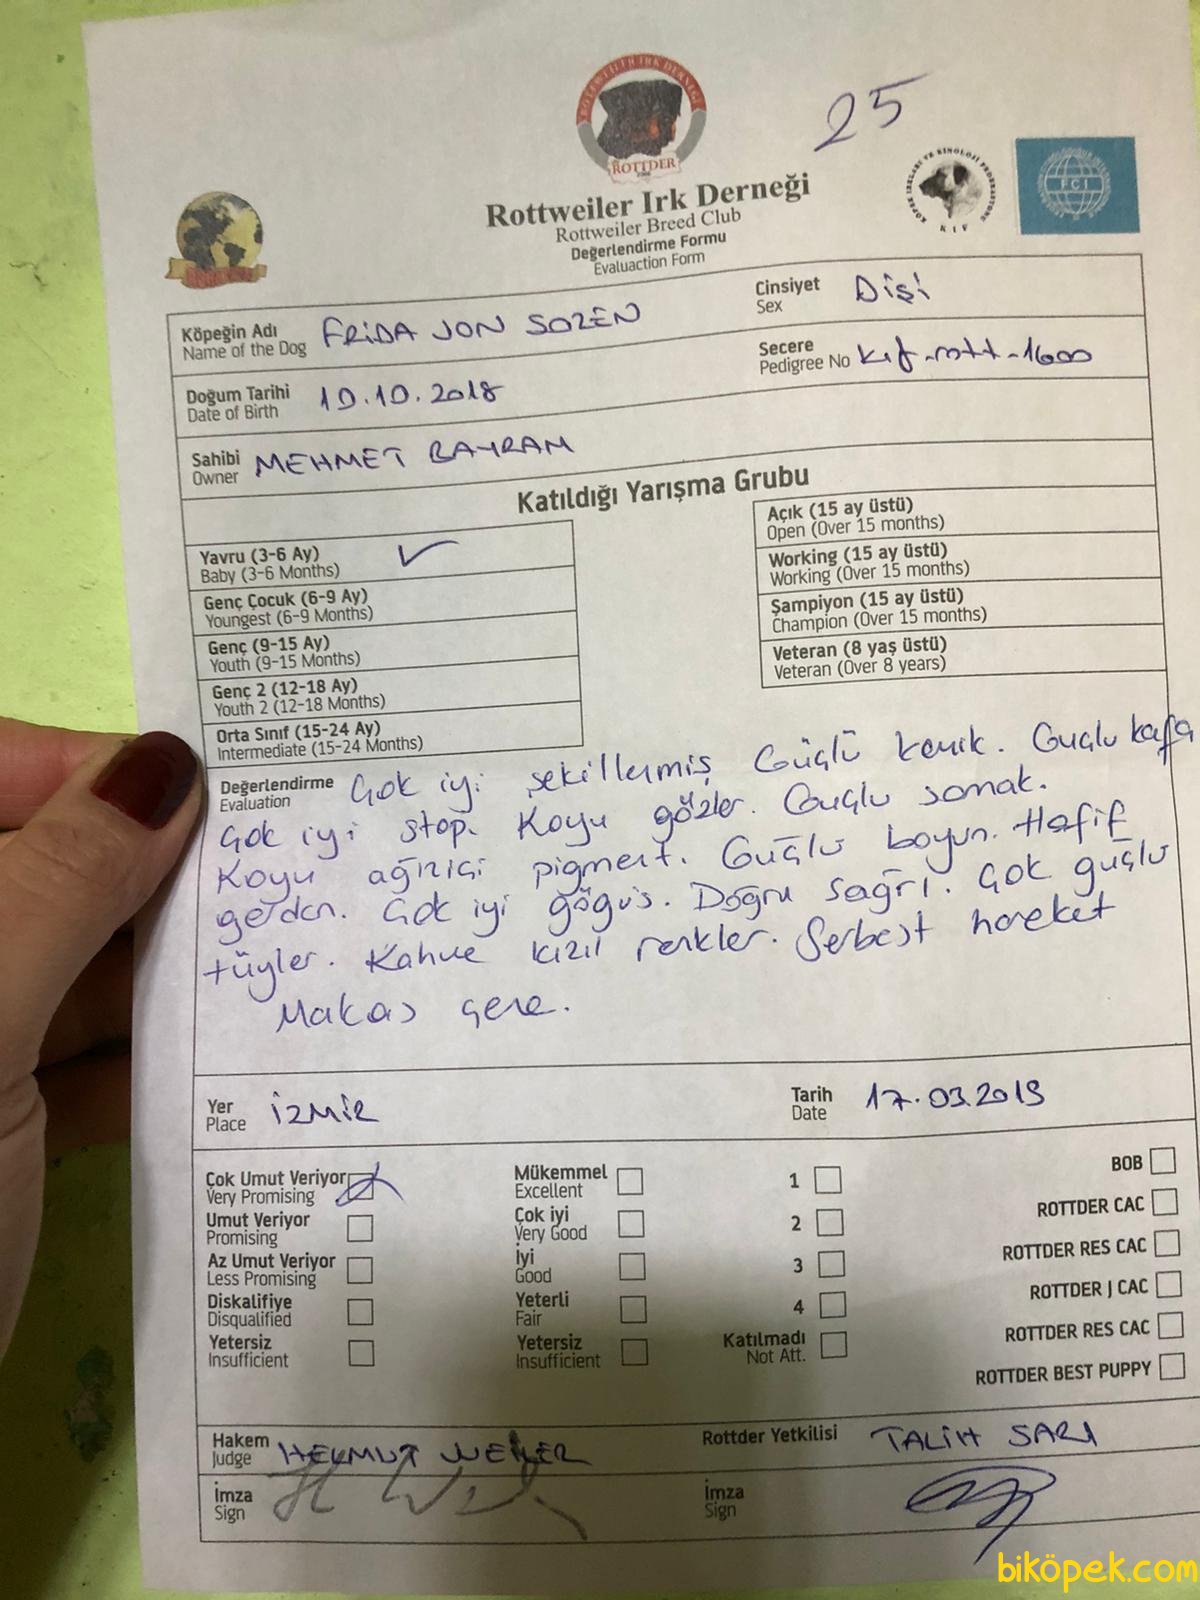 ROTTWEILER IRK DERNEĞİ
ROTTDER
25
KÖPEK IRKLARI VE KİNOLOJİ FEDERASYONU
KIF
FCI
Rottweiler Irk Derneği
Rottweiler Breed Club
Değerlendirme Formu
Evaluaction Form
Köpeğin Adı FRİDA JON SOZEN Cinsiyet Dişi
Name of the Dog Sex
Doğum Tarihi 10.10.2018 Secere kıf-rott-1600
Date of Birth Pedigree No
Sahibi MEHMET BAYRAM
Owner
Katıldığı Yarışma Grubu
Yavru (3-6 Ay) ✓
Baby (3-6 Months)
Genç Çocuk (6-9 Ay)
Youngest (6-9 Months)
Genç (9-15 Ay)
Youth (9-15 Months)
Genç 2 (12-18 Ay)
Youth 2 (12-18 Months)
Orta Sınıf (15-24 Ay)
Intermediate (15-24 Months)
Açık (15 ay üstü)
Open (Over 15 months)
Working (15 ay üstü)
Working (Over 15 months)
Şampiyon (15 ay üstü)
Champion (Over 15 months)
Veteran (8 yaş üstü)
Veteran (Over 8 years)
Değerlendirme Çok iyi şekillenmiş Güçlü kemik. Güçlu kafa
Evaluation
Çok iyi stop. Koyu gözler. Güçlu somak.
Koyu ağıziçi pigment. Güçlü boyun. Hafif
gerdan. Çok iyi göğüs. Doğru sağrı. Çok güçlü
tüyler. Kahve kızıl renkler. Serbest hareket
Makas çene.
Yer İZMİR Tarih 17.03.2019
Place Date
Çok Umut Veriyor
Very Promising
Umut Veriyor
Promising
Az Umut Veriyor
Less Promising
Diskalifiye
Disqualified
Yetersiz
Insufficient
Mükemmel
Excellent
Çok iyi
Very Good
İyi
Good
Yeterli
Fair
Yetersiz
Insufficient
1
2
3
4
Katılmadı
Not Att.
BOB
ROTTDER CAC
ROTTDER RES CAC
ROTTDER J CAC
ROTTDER RES CAC
ROTTDER BEST PUPPY
Hakem HELMUT WEILER Rottder Yetkilisi TALİH SARI
Judge
İmza İmza
Sign Sign
biköpek.com